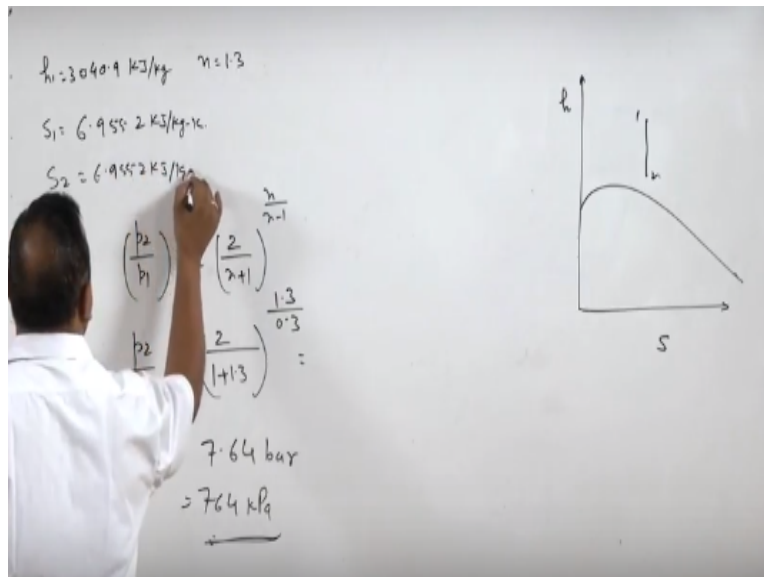 h₁ = 3040.9 KJ/kg n = 1.3
S₁ = 6.9552 KJ/kg-K.
S₂ = 6.9552 KJ/kg
(p2/p1) (2/n+1)^n/n-1
p2 (2/1+1.3)^1.3/0.3 =
7.64 bar
= 764 kPa
h
1
S